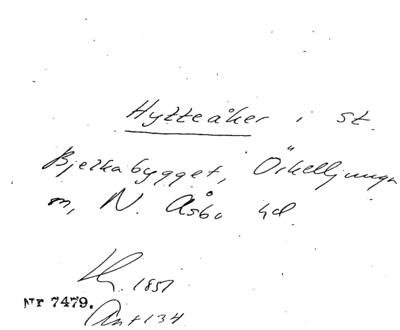 Hytteåker i st.
Bjelkabygget, Örkelljunga
sn, N. Åsbo hd
1851
Nr 7479.
Ant 134